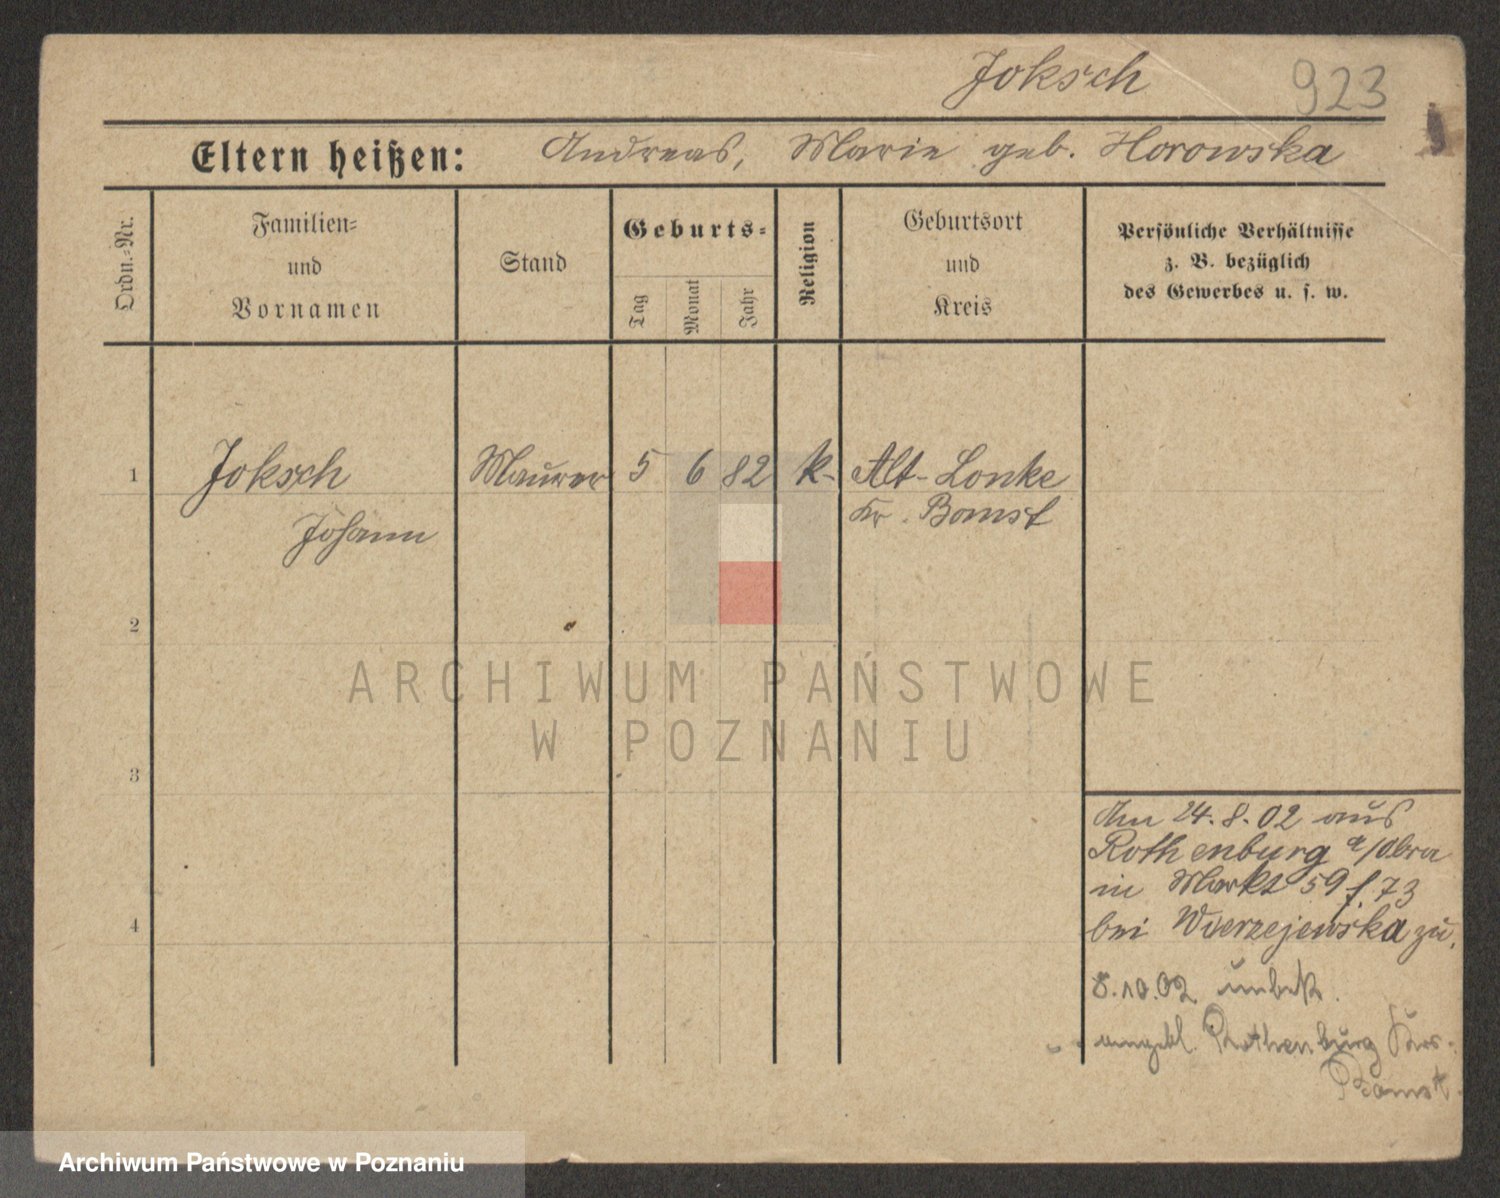 Joksch 923
Eltern heißen: Andreas, Marie geb. Horowska
Ordn.-Nr.
Familien-
und
Vornamen
Stand
Geburts-
Tag
Monat
Jahr
Religion
Geburtsort
und
Kreis
Persönliche Verhältnisse
z. B. bezüglich
des Gewerbes u. s. w.
1 Joksch Maurer 5 6 82 k. Alt-Lonke
Johann Kr. Bomst
2
3
4
Am 24.8.02 aus
Rothenburg a/Obra
in Markt 59 f. 73
bei Wierzejewska zu.
8.10.02 unbek.
angebl. Rothenburg Krs.
Bomst
ARCHIWUM PAŃSTWOWE
W POZNANIU
Archiwum Państwowe w Poznaniu